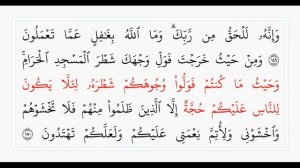 وَإِنَّهُۥ لَلْحَقُّ مِن رَّبِّكَ ۗ وَمَا ٱللَّهُ بِغَٰفِلٍ عَمَّا تَعْمَلُونَ
١٤٩ وَمِنْ حَيْثُ خَرَجْتَ فَوَلِّ وَجْهَكَ شَطْرَ ٱلْمَسْجِدِ ٱلْحَرَامِ ۚ
وَحَيْثُ مَا كُنتُمْ فَوَلُّوا۟ وُجُوهَكُمْ شَطْرَهُۥ لِئَلَّا يَكُونَ
لِلنَّاسِ عَلَيْكُمْ حُجَّةٌ إِلَّا ٱلَّذِينَ ظَلَمُوا۟ مِنْهُمْ فَلَا تَخْشَوْهُمْ
وَٱخْشَوْنِى وَلِأُتِمَّ نِعْمَتِى عَلَيْكُمْ وَلَعَلَّكُمْ تَهْتَدُونَ ١٥٠